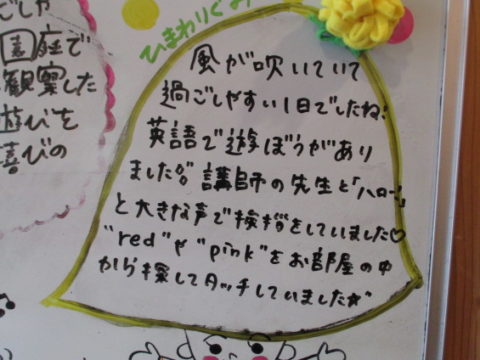 ごしや
園庭で
観察した
遊びを
喜びの
ひまわりぐみ
風が吹いていて
過ごしやすい1日でしたね!
英語で遊ぼうがあり
ましたが講師の先生と「ハロー!」
と大きな声で挨拶をしていました♡
"red"や"pink"をお部屋の中
から探してタッチしていました☆